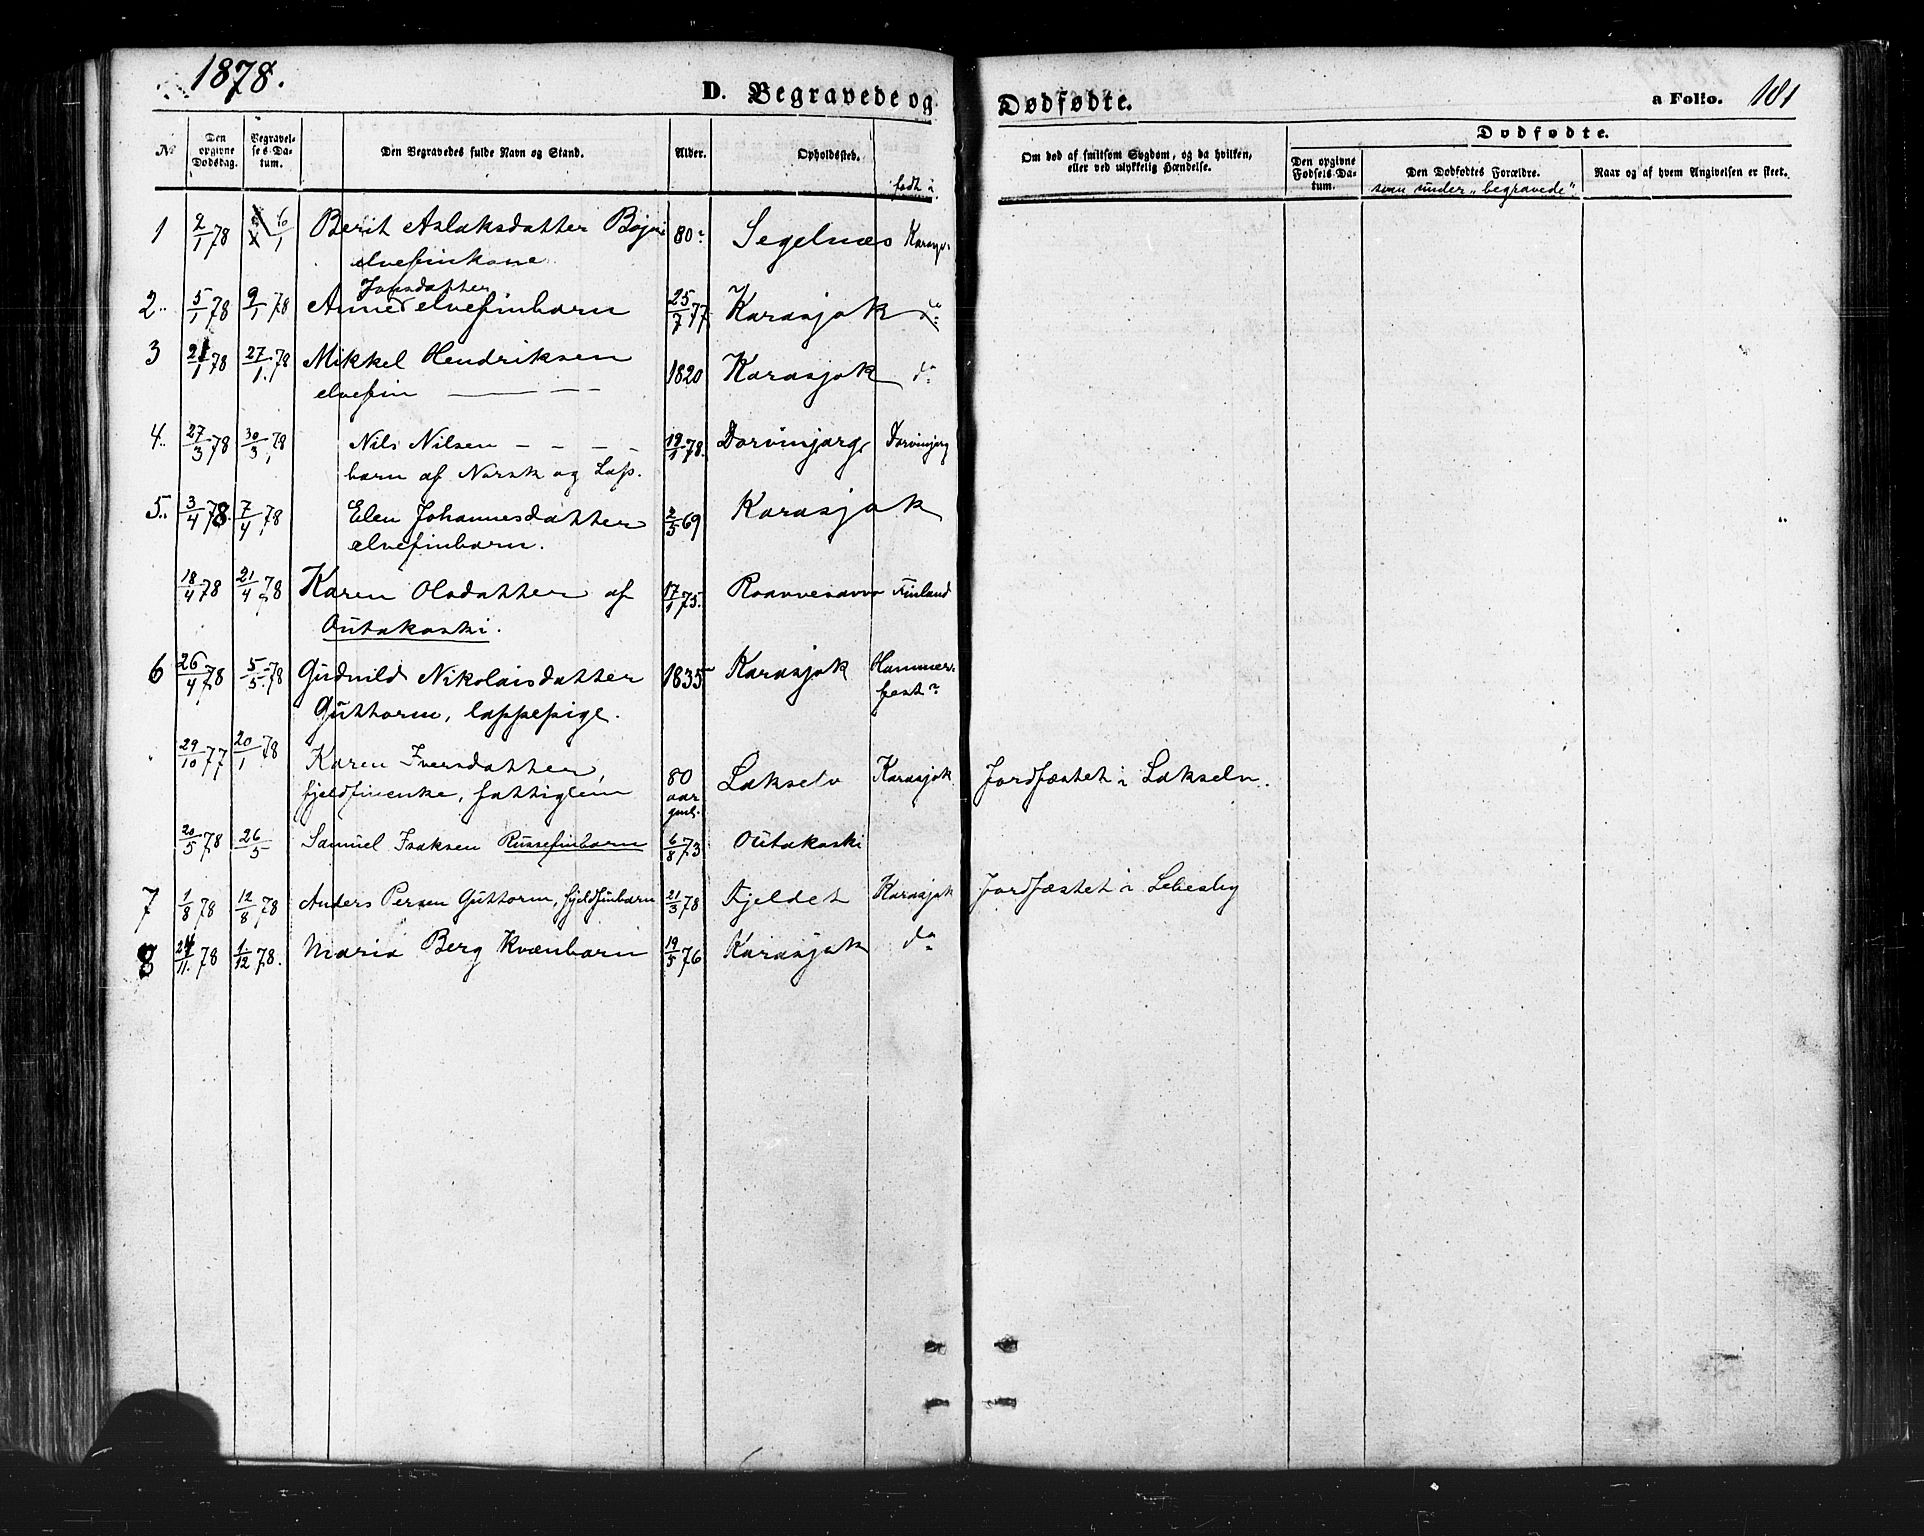 1878.
D. Begravede og Dødfødte.
a Folio. 181
No
Den opgivne Dødsdag.
Begravelses-Datum.
Den Begravedes fulde Navn og Stand.
Alder.
Opholdssted.
født i
Om død af smitsom Sygdom, og da hvilken, eller ved ulykkelig Hændelse.
Dødfødte.
Den opgivne Fødsels-Datum.
Den Dødfødtes Forældre.
Naar og af hvem Angivelsen er skeet.
som under "begravede"
1 2/1 78 6/1 Berit Aslaksdatter 80 Segelnæs
elvefinkone
Jonsdatter
2 5/1 78 9/1 78 Anne elvefinbarn 25/7 77 Karasjok do
3 21/1 78 27/1 78 Mikkel Hendriksen 1820 Karasjok do
elvefin
4 27/3 78 30/3 78 Nils Nilsen 19/1 78 Dorvinjarg Dorvinjarg
barn af Norsk og Lap.
5 3/4 78 7/4 78 Elen Johannesdatter 2/5 69 Karasjok
elvefinbarn.
18/4 78 21/4 78 Karen Olsdatter af 17/1 75 Roavvesavvo Finland
Outakoski.
6 26/4 78 5/5 78 Gudnild Nikolaisdatter 1835 Karasjok Hammerfest
Guttorm, lappepige.
29/10 77 20/1 78 Karen Iversdatter, 80 aar gml. Lakselv Karasjok Jordfæstet i Lakselv.
fjeldfinenke, fattiglem
20/5 78 26/5 Samuel Isaksen Russefinbarn 6/8 73 Outakoski
7 1/8 78 12/8 78 Anders Persen Guttorm, fjeldfinbarn 21/3 78 Fjeldet Karasjok Jordfæstet i Lebesby
8 24/11 78 1/12 78. Maria Berg Kvænbarn 19/5 76 Karasjok do